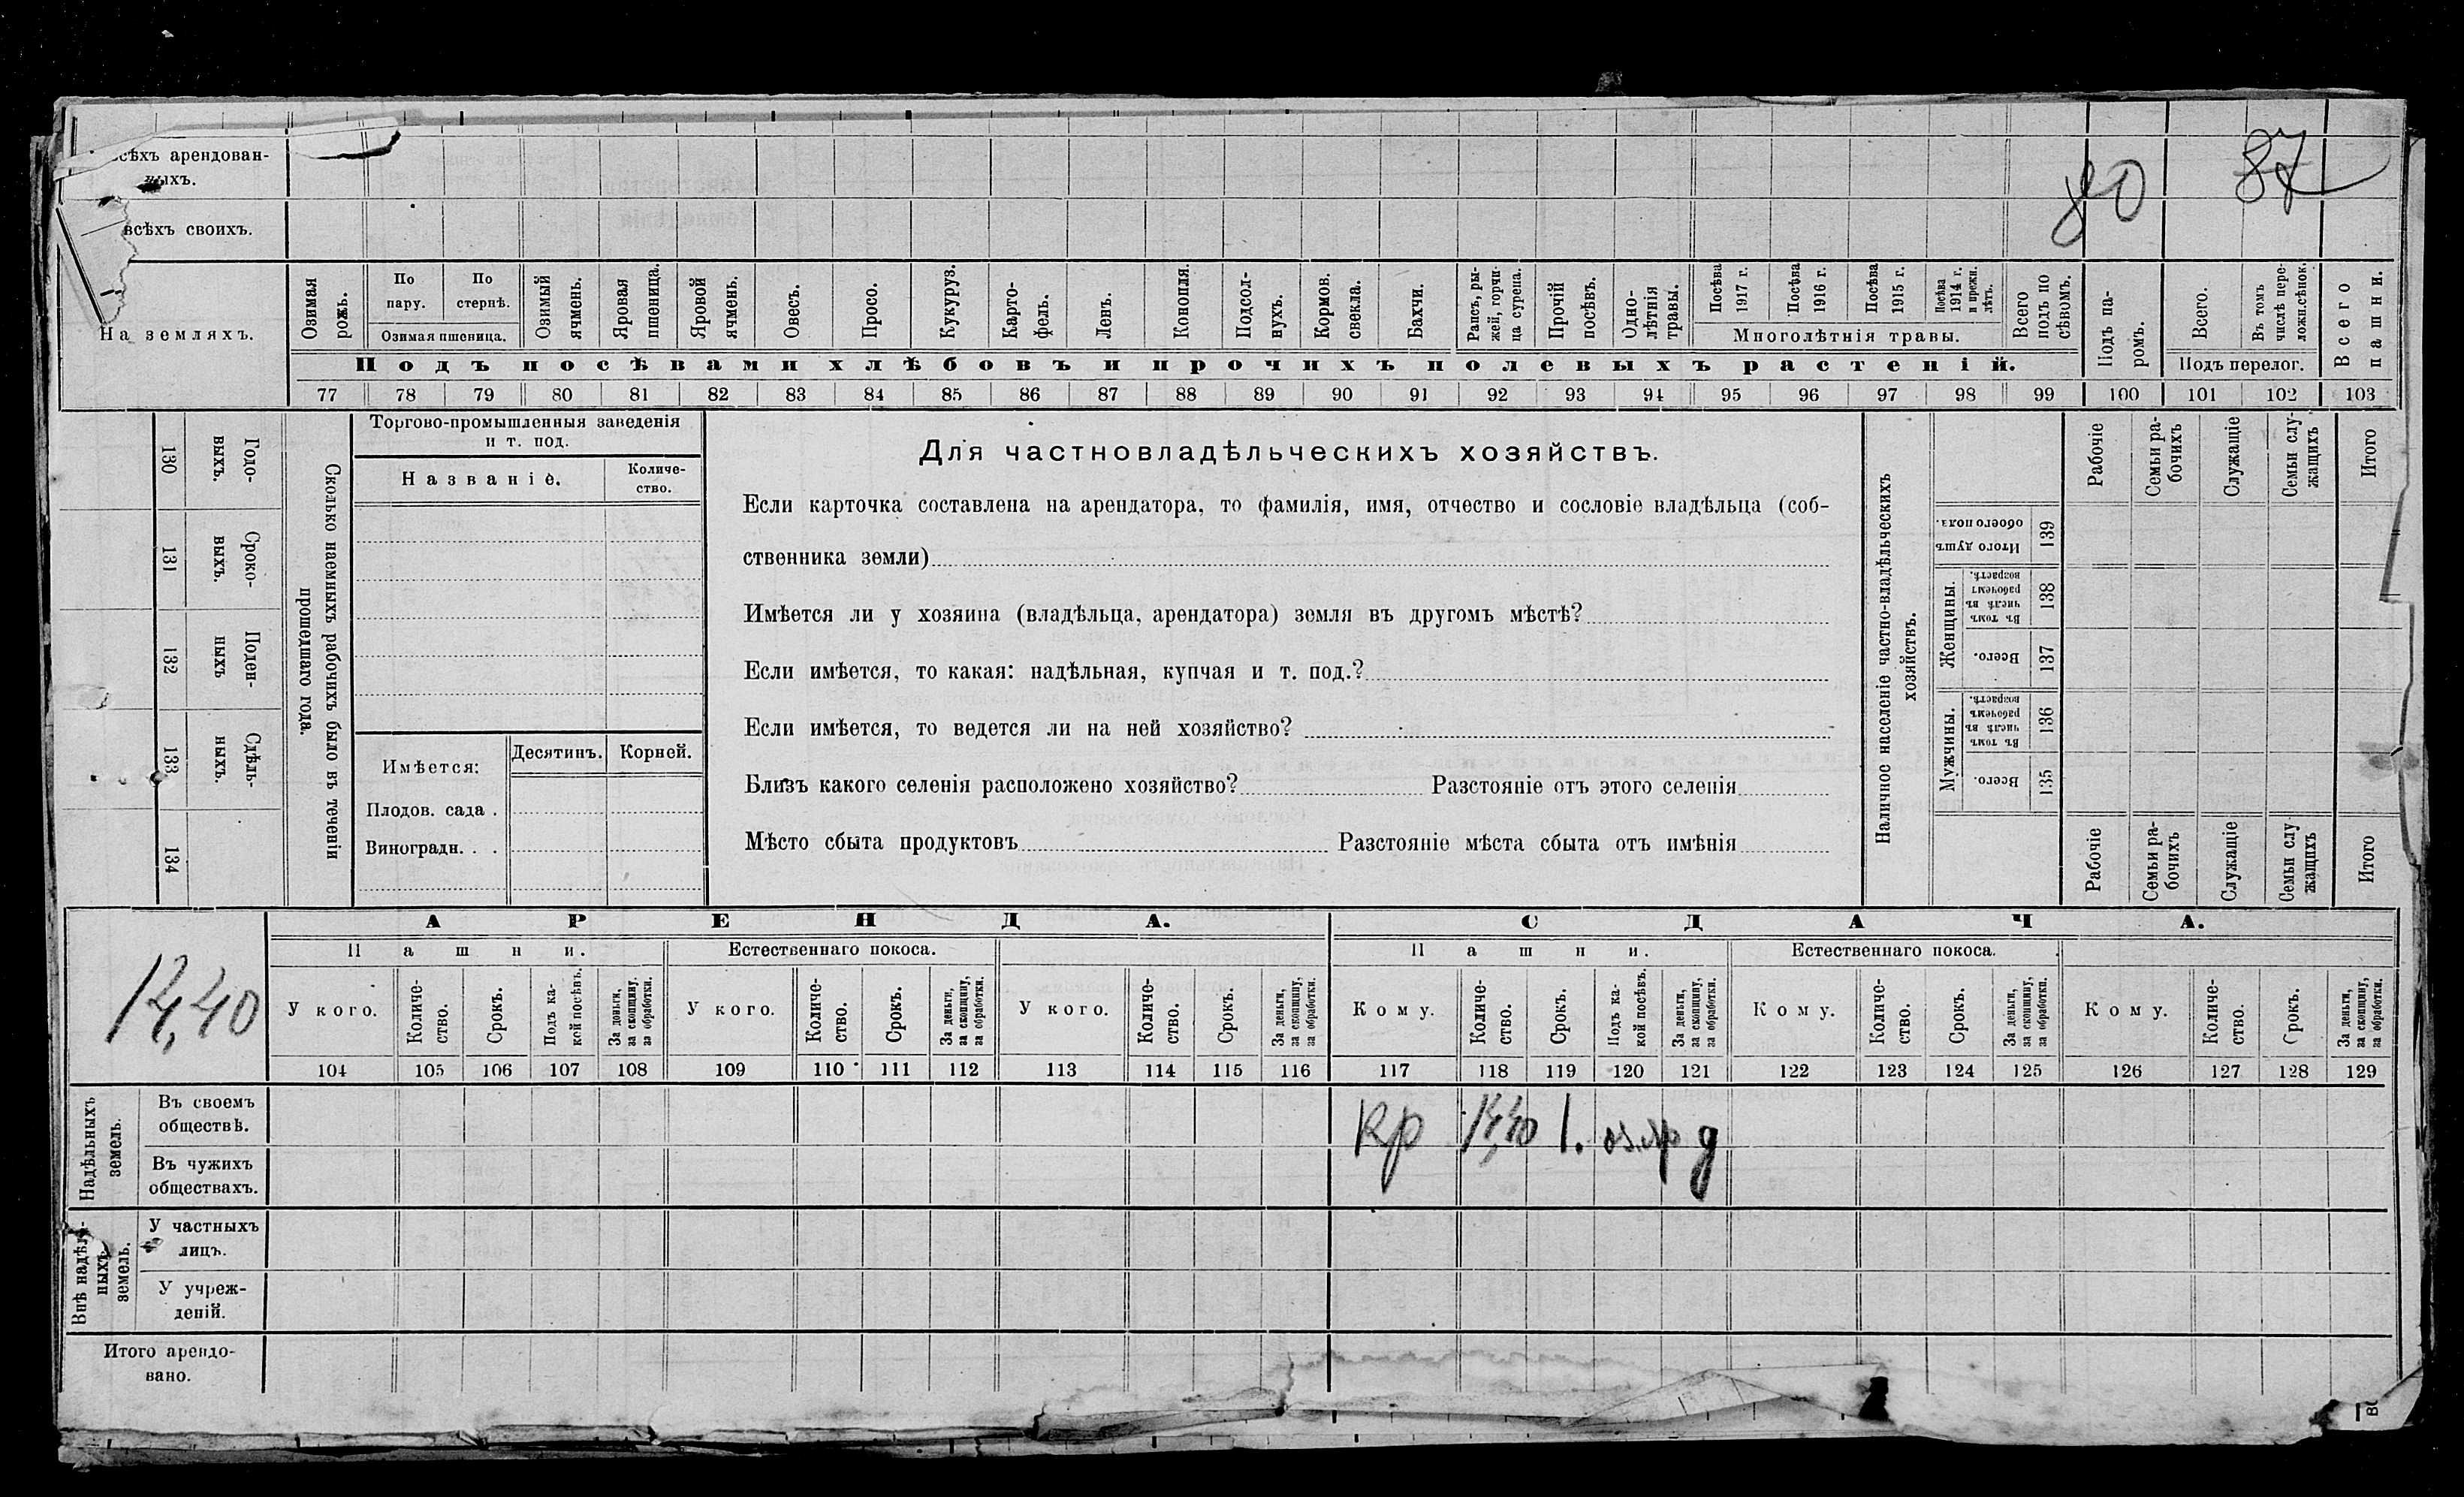 80 87
всѣхъ арендован-
ныхъ.
всѣхъ своихъ.
На земляхъ.
Озимая рожь.
По пару.
По стернѣ.
Озимая пшеница.
Озимый ячмень.
Яровая пшеница.
Яровой ячмень.
Овесъ.
Просо.
Кукуруз.
Карто-
фель.
Ленъ.
Конопля.
Подсол-
нухъ.
Кормов.
свекла.
Бахчи.
Рапсъ, ры-
жей, горчи-
ца сурепа.
Прочій
посѣвъ.
Одно-
лѣтнія
травы.
Посѣва
1917 г.
Посѣва
1916 г.
Посѣва
1915 г.
Посѣва
1914 г.
и прежн.
лѣтъ.
Многолѣтнія травы.
Всего
подъ по
сѣвомъ.
Подъ па-
ромъ.
Всего.
Въ томъ
числѣ пере-
ложн.сѣнок.
Подъ перелог.
Всего
пашни.
Подъ посѣвами хлѣбовъ и прочихъ полевыхъ растеній.
77 78 79 80 81 82 83 84 85 86 87 88 89 90 91 92 93 94 95 96 97 98 99 100 101 102 103
130
Годо-
выхъ.
131
Сроко-
выхъ.
132
Поден-
ныхъ
133
Сдѣль-
ныхъ.
134
Сколько наемныхъ рабочихъ было въ теченіи
прошедшаго года.
Торгово-промышленныя заведенія
и т. под.
Названіе.
Количе-
ство.
Имѣется:
Десятинъ.
Корней.
Плодов. сада .
Виноградн. . .
Для частновладѣльческихъ хозяйствъ.
Если карточка составлена на арендатора, то фамилія, имя, отчество и сословіе владѣльца (соб-
ственника земли)
Имѣется ли у хозяина (владѣльца, арендатора) земля въ другомъ мѣстѣ?
Если имѣется, то какая: надѣльная, купчая и т. под.?
Если имѣется, то ведется ли на ней хозяйство?
Близъ какого селенія расположено хозяйство? Разстояніе отъ этого селенія
Мѣсто сбыта продуктовъ Разстояніе мѣста сбыта отъ имѣнія
Наличное населеніе частно-владѣльческихъ
хозяйствъ.
Рабочіе
Семьи ра-
бочихъ
Служащіе
Семьи слу-
жащихъ
Итого
Итого душъ
обоего пола.
139
Женщины.
Въ томъ
числѣ въ
рабочемъ
возрастѣ.
138
Всего.
137
Мужчины.
Въ томъ
числѣ въ
рабочемъ
возрастѣ.
136
Всего.
135
Рабочіе
Семьи ра-
бочихъ
Служащіе
Семьи слу
жащихъ
Итого
АРЕНДА.
СДАЧА.
Пашни.
Естественнаго покоса.
Пашни.
Естественнаго покоса.
У кого.
Количе-
ство.
Срокъ.
Подъ ка-
кой посѣвъ.
За деньги,
за скопщину,
за обработки.
У кого.
Количе-
ство.
Срокъ.
За деньги,
за скопщину,
за обработки.
У кого.
Количе-
ство.
Срокъ.
За деньги,
за скопщину,
за обработки.
Кому.
Количе-
ство.
Срокъ.
Подъ ка-
кой посѣвъ.
За деньги,
за скопщину,
за обработки.
Кому.
Количе-
ство.
Срокъ.
За деньги,
за скопщину,
за обработки.
Кому.
Количе-
ство.
Срокъ.
За деньги,
за скопщину,
за обработки.
104 105 106 107 108 109 110 111 112 113 114 115 116 117 118 119 120 121 122 123 124 125 126 127 128 129
Надѣльныхъ
земель.
Въ своемъ
обществѣ.
Кр 1. д
Въ чужихъ
обществахъ.
Внѣ надѣль-
ныхъ
земель.
У частныхъ
лицъ.
У учреж-
деній.
Итого арендо-
вано.